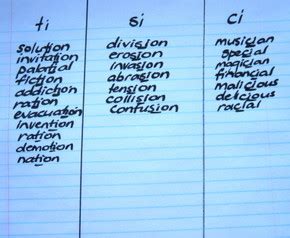 ti
solution
invitation
palatial
fiction
addiction
ration
evacuation
invention
ration
demotion
nation
si
division
erosion
invasion
abrasion
tension
collision
confusion
ci
musician
special
magician
financial
malicious
delicious
racial